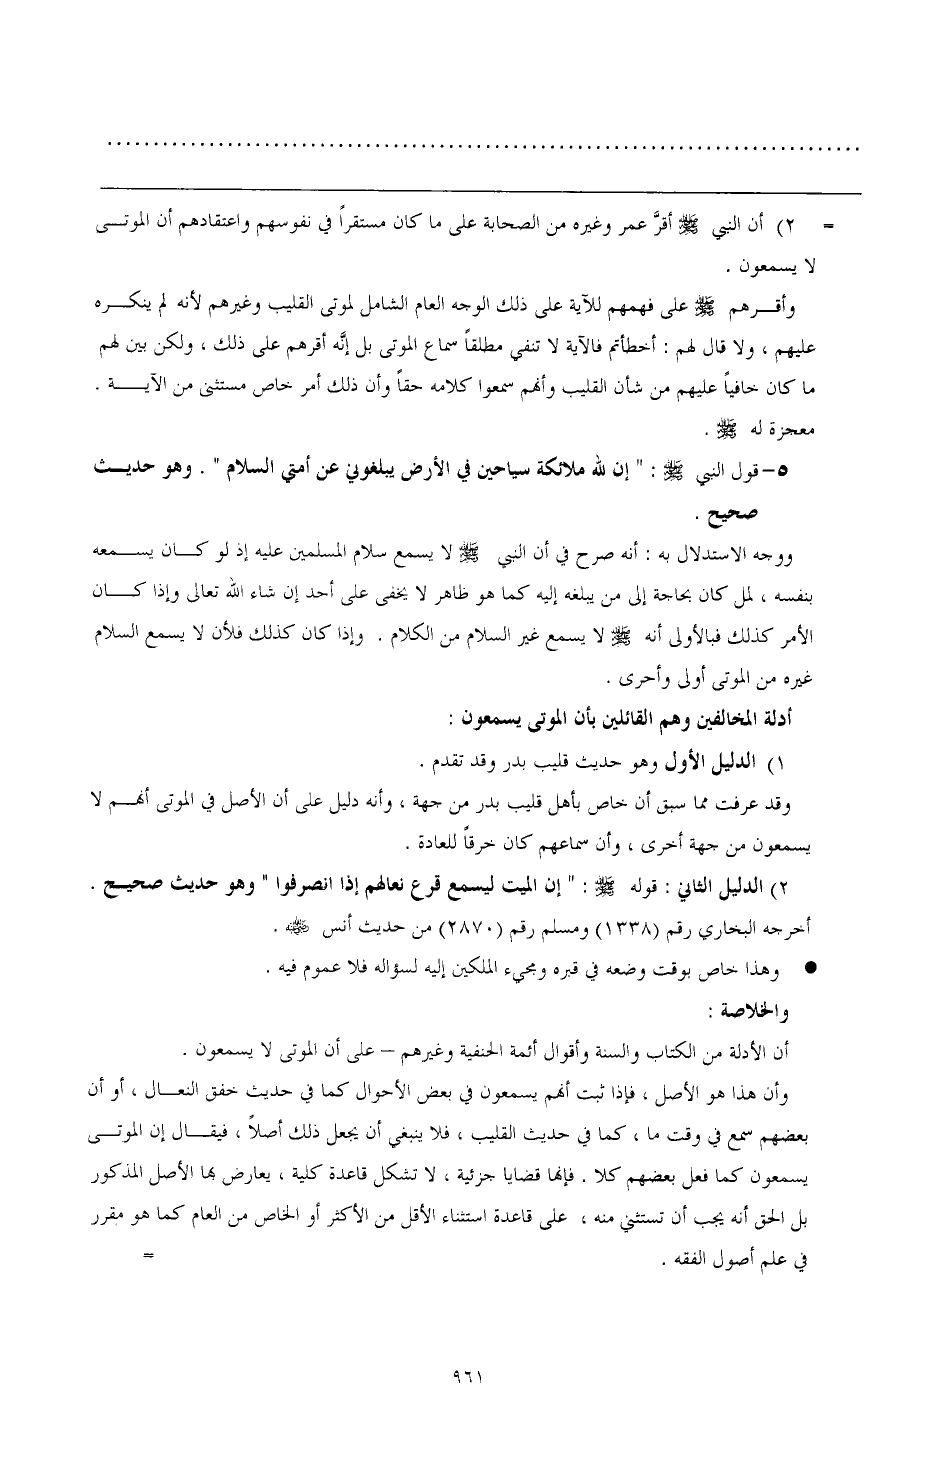 = ٢) أن النبي ﷺ أقرَّ عمر وغيره من الصحابة على ما كان مستقراً في نفوسهم واعتقادهم أن الموتـــى
لا يسمعون .
وأقـــرهم ﷺ على فهمهم للآية على ذلك الوجه العام الشامل لموتى القليب وغيرهم لأنه لم ينكـــره
عليهم ، ولا قال لهم : أخطأتم فالآية لا تنفي مطلقاً سماع الموتى بل إنَّه أقرهم على ذلك ، ولكن بين لهم
ما كان خافياً عليهم من شأن القليب وأنهم سمعوا كلامه حقاً وأن ذلك أمر خاص مستثنى من الآيـــــة .
معجزة له ﷺ .
٥- قول النبي ﷺ : " إن لله ملائكة سياحين في الأرض يبلغوني عن أمتي السلام " . وهو حديـــث
صحيح .
ووجه الاستدلال به : أنه صرح في أن النبي ﷺ لا يسمع سلام المسلمين عليه إذ لو كـــان يســـمعه
بنفسه ، لمل كان بحاجة إلى من يبلغه إليه كما هو ظاهر لا يخفى على أحد إن شاء الله تعالى وإذا كـــان
الأمر كذلك فبالأولى أنه ﷺ لا يسمع غير السلام من الكلام . وإذا كان كذلك فلأن لا يسمع السلام
غيره من الموتى أولى وأحرى .
أدلة المخالفين وهم القائلين بأن الموتى يسمعون :
١) الدليل الأول وهو حديث قليب بدر وقد تقدم .
وقد عرفت مما سبق أن خاص بأهل قليب بدر من جهة ، وأنه دليل على أن الأصل في الموتى أنهـــم لا
يسمعون من جهة أخرى ، وأن سماعهم كان خرقاً للعادة .
٢) الدليل الثاني : قوله ﷺ : " إن الميت ليسمع قرع نعالهم إذا انصرفوا " وهو حديث صحيـــح .
أخرجه البخاري رقم (١٣٣٨) ومسلم رقم (٢٨٧٠) من حديث أنس رضي الله عنه .
● وهذا خاص بوقت وضعه في قبره ومجيء الملكين إليه لسؤاله فلا عموم فيه .
والخلاصة :
أن الأدلة من الكتاب والسنة وأقوال أئمة الحنفية وغيرهم – على أن الموتى لا يسمعون .
وأن هذا هو الأصل ، فإذا ثبت أنهم يسمعون في بعض الأحوال كما في حديث خفق النعـــال ، أو أن
بعضهم سمع في وقت ما ، كما في حديث القليب ، فلا ينبغي أن يجعل ذلك أصلاً ، فيقـــال إن الموتـــى
يسمعون كما فعل بعضهم كلا . فإنها قضايا جزئية ، لا تشكل قاعدة كلية ، يعارض بها الأصل المذكور
بل الحق أنه يجب أن تستثني منه ، على قاعدة استثناء الأقل من الأكثر أو الخاص من العام كما هو مقرر
في علم أصول الفقه . =
٩٦١